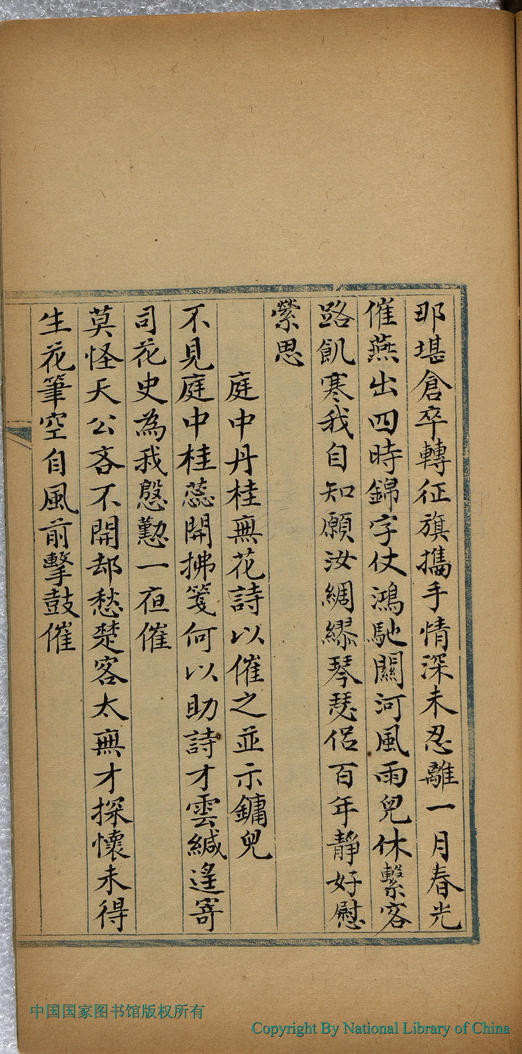 那堪倉卒轉征旗攜手情深未忍離一月春光
催燕出四時錦字仗鴻馳關河風雨兒休繫客
路飢寒我自知願汝綢繆琴瑟侶百年靜好慰
縈思
庭中丹桂無花詩以催之並示鏞兒
不見庭中桂蕊開拂箋何以助詩才雲緘遙寄
司花史為我慇懃一夜催
莫怪天公吝不開却愁楚客太無才探懷未得
生花筆空自風前擊鼓催
中国国家图书馆版权所有
Copyright By National Library of China